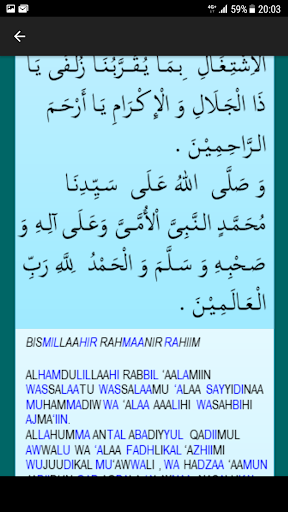 4G 59% 20:03
الْاِشْتِغَالِ بِمَا يُقَرِّبُنَا زُلْفَى يَا
ذَا الْجَلَالِ وَ الْإِكْرَامِ يَا أَرْحَمَ
الرَّاحِمِيْنَ .
وَ صَلَّى اللهُ عَلَى سَيِّدِنَا
مُحَمَّدٍ النَّبِيِّ الْأُمِّيِّ وَعَلَى آلِهِ وَ
صَحْبِهِ وَ سَلَّمَ وَ الْحَمْدُ لِلَّهِ رَبِّ
الْعَالَمِيْنَ .
BISMILLAAHIR RAHMAANIR RAHIIM
ALHAMDULILLAAHI RABBIL 'AALAMIIN
WASSALAATU WASSALAAMU 'ALAA SAYYIDINAA
MUHAMMADIW WA 'ALAA AAALIHI WASAHBIHI
AJMA'IIN.
ALLAHUMMA ANTAL ABADIYYUL QADIIMUL
AWWALU WA 'ALAA FADHLIKAL 'AZHIIMI
WUJUUDIKAL MU'AWWALI , WA HADZAA 'AAMUN